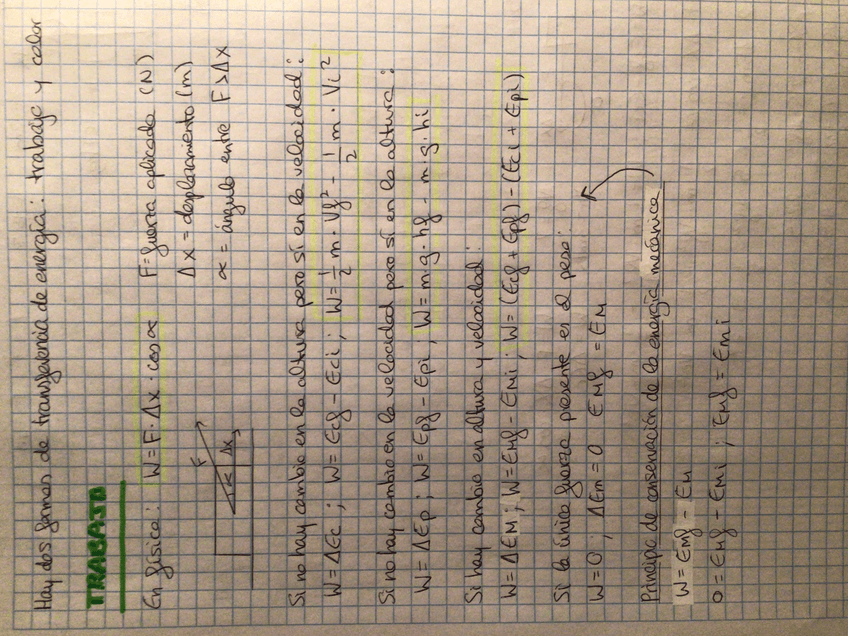 Hay dos formas de transferencia de energía: trabajo y calor
TRABAJO
En física: W = F · Δx · cos α
F = fuerza aplicada (N)
Δx = desplazamiento (m)
α = ángulo entre F > Δx
F
α
Δx
Si no hay cambio en la altura pero sí en la velocidad:
W = ΔEc ; W = Ecf - Eci ; W = 1/2 m · Vf² - 1/2 m · Vi²
Si no hay cambio en la velocidad pero sí en la altura:
W = ΔEp ; W = Epf - Epi ; W = m·g·hf - m·g·hi
Si hay cambio en altura y velocidad:
W = ΔEM ; W = EMf - EMi ; W = (Ecf + Epf) - (Eci + Epi)
Si la única fuerza presente es el peso:
W = 0 ; ΔEm = 0 EMf = EM
Principio de conservación de la energía mecánica
W = EMf - EM
0 = EMf - EMi ; EMf = EMi